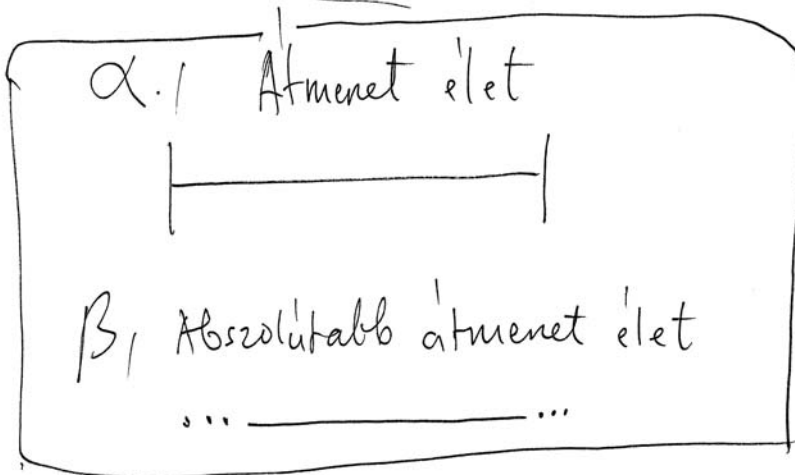 α./ Átmenet élet
β, Abszolútabb átmenet élet
... ...